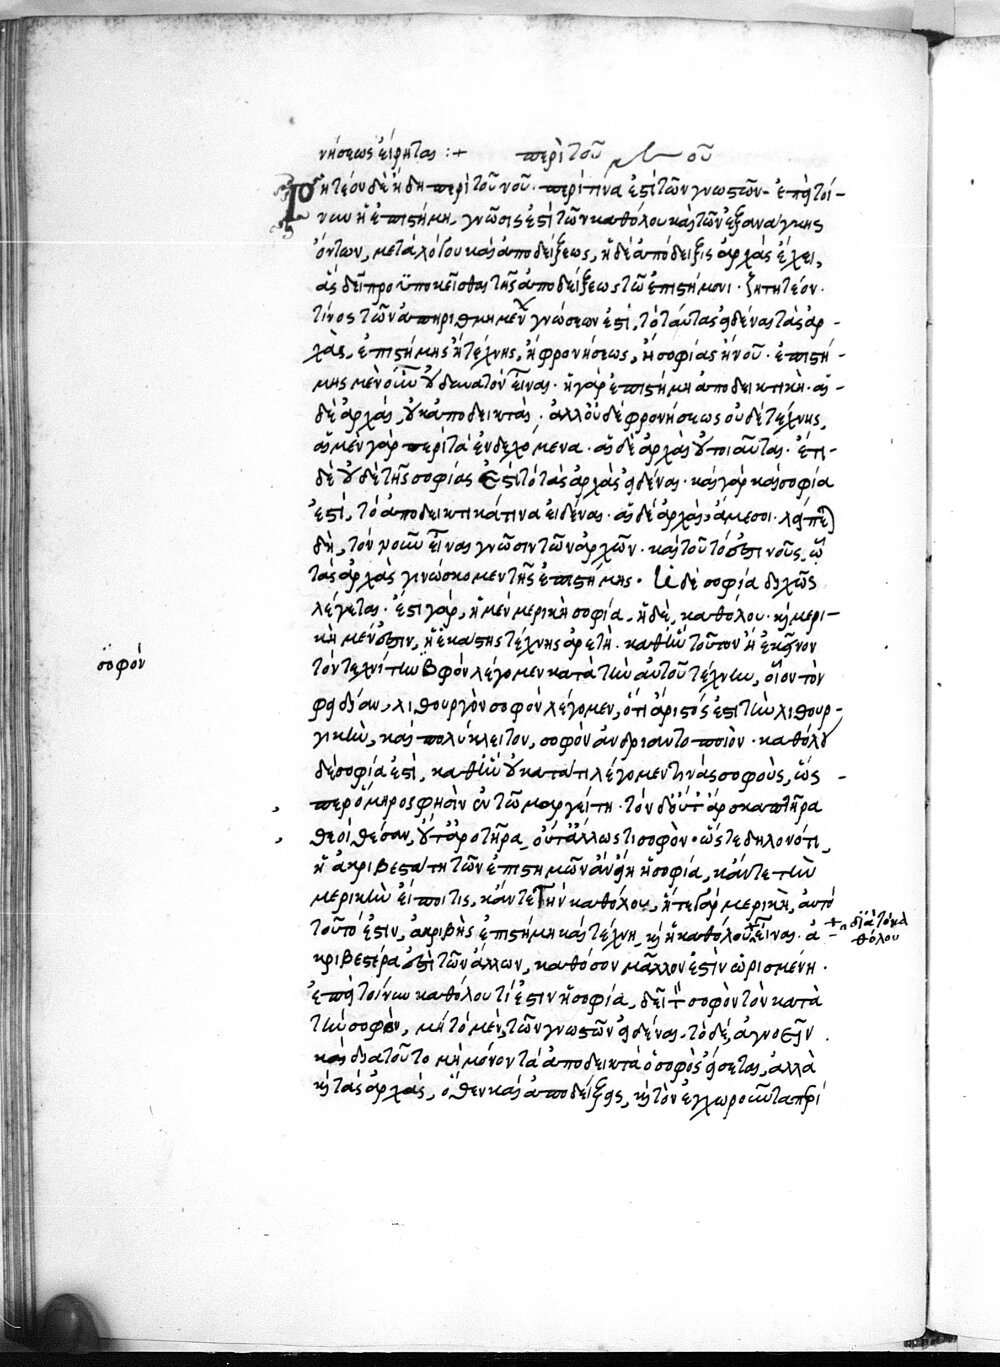 νήσεως εἴρηται :+ περὶ τοῦ νοῦ
Ῥητέον δὲ ἤδη περὶ τοῦ νοῦ· περὶ τίνα ἐστὶ τῶν γνωστῶν· ἐπεὶ τοί-
νυν ἡ ἐπιστήμη, γνῶσις ἐστὶ τῶν καθόλου καὶ τῶν ἐξ ἀνάγκης
ὄντων, μετὰ λόγου καὶ ἀποδείξεως, ἡ δὲ ἀπόδειξις ἀρχὰς ἔχει,
ἃς δεῖ προϋποκεῖσθαι τῆς ἀποδείξεως τῷ ἐπιστήμονι· ζητητέον·
τίνος τῶν ἀπηριθμημένων γνώσεων ἐστὶ, τὸ ταύτας εἰδέναι τὰς ἀρ-
χὰς, ἐπιστήμης ἢ τέχνης, ἢ φρονήσεως, ἢ σοφίας ἢ νοῦ· ἐπιστή-
μης μὲν οὖν οὐ δυνατὸν εἶναι· ἡ γὰρ ἐπιστήμη ἀποδεικτικὴ· αἱ
δὲ ἀρχαὶ, οὐκ ἀποδεικταὶ· ἀλλ' οὐδὲ φρονήσεως οὐδὲ τέχνης,
αἱ μὲν γὰρ περὶ τὰ ἐνδεχόμενα· αἱ δὲ ἀρχαὶ οὐ τοιαῦται· ἔτι
δὲ οὐδὲ τῆς σοφίας ἐστὶ τὸ τὰς ἀρχὰς εἰδέναι· καὶ γὰρ καὶ σοφία
ἐστὶ, τὸ ἀποδεικτικά τινα εἰδέναι· αἱ δὲ ἀρχαὶ, ἄμεσοι· λείπε
δὴ, τὸν νοῦν εἶναι γνῶσιν τῶν ἀρχῶν· καὶ τοῦτό ἐστι νοῦς, ᾧ
τὰς ἀρχὰς γινώσκομεν τῆς ἐπιστήμης· ἡ δὲ σοφία διχῶς
λέγεται· ἔστι γὰρ, ἡ μὲν μερικὴ σοφία, ἡ δὲ, καθόλου· καὶ μερι-
κὴ μέν ἐστιν, ἡ ἑκάστης τέχνης ἀρετὴ· καθ' ἣν τοῦτον ἢ ἐκεῖνον
τὸν τεχνίτην σοφὸν λέγομεν κατὰ τὴν αὐτοῦ τέχνην, οἷον τὸν
φειδίαν, λιθουργὸν σοφὸν λέγομεν, ὅτι ἄριστός ἐστι τὴν λιθουρ-
γικὴν, καὶ πολύκλειτον, σοφὸν ἀνδριαντοποιὸν· καθόλου
δὲ σοφία ἐστὶ, καθ' ἣν οὐ κατά τι λέγομεν τινὰς σοφοὺς, ὥς-
περ ὅμηρος φησὶν ἐν τῷ μαργείτῃ· τὸν δ' οὔτ' ἂρ σκαπτῆρα
θεοὶ θέσαν, οὔτ' ἀροτῆρα, οὔτ' ἄλλως τι σοφὸν· ὥστε δηλονότι,
ἡ ἀκριβεστάτη τῶν ἐπιστημῶν ἂν εἴη ἡ σοφία, κἄν τε τὴν
μερικὴν εἴποι τις, κἄν τε τὴν καθόλου, ἥ τε γὰρ μερικὴ, αὐτὸ
τοῦτό ἐστιν, ἀκριβὴς ἐπιστήμη καὶ τέχνη, καὶ ἡ καθόλου εἶναι· ἀ
διὰ τὸ κα
θόλου
κριβεστέρα ἐστὶ τῶν ἄλλων, καθόσον μᾶλλον ἐστὶν ὡρισμένη·
ἐπεὶ τοίνυν καθόλου τί ἐστιν ἡ σοφία, δεῖ τὸν σοφὸν τὸν κατὰ
τὴν σοφὸν, μὴ τὸ μὲν, τῶν γνωστῶν εἰδέναι, τὸ δὲ, ἀγνοεῖν
καὶ διὰ τοῦτο μὴ μόνον τὰ ἀποδεικτὰ ὁ σοφὸς εἴσεται, ἀλλὰ
καὶ τὰς ἀρχὰς, ὅθεν καὶ ἀποδείξεις,
σοφὸν